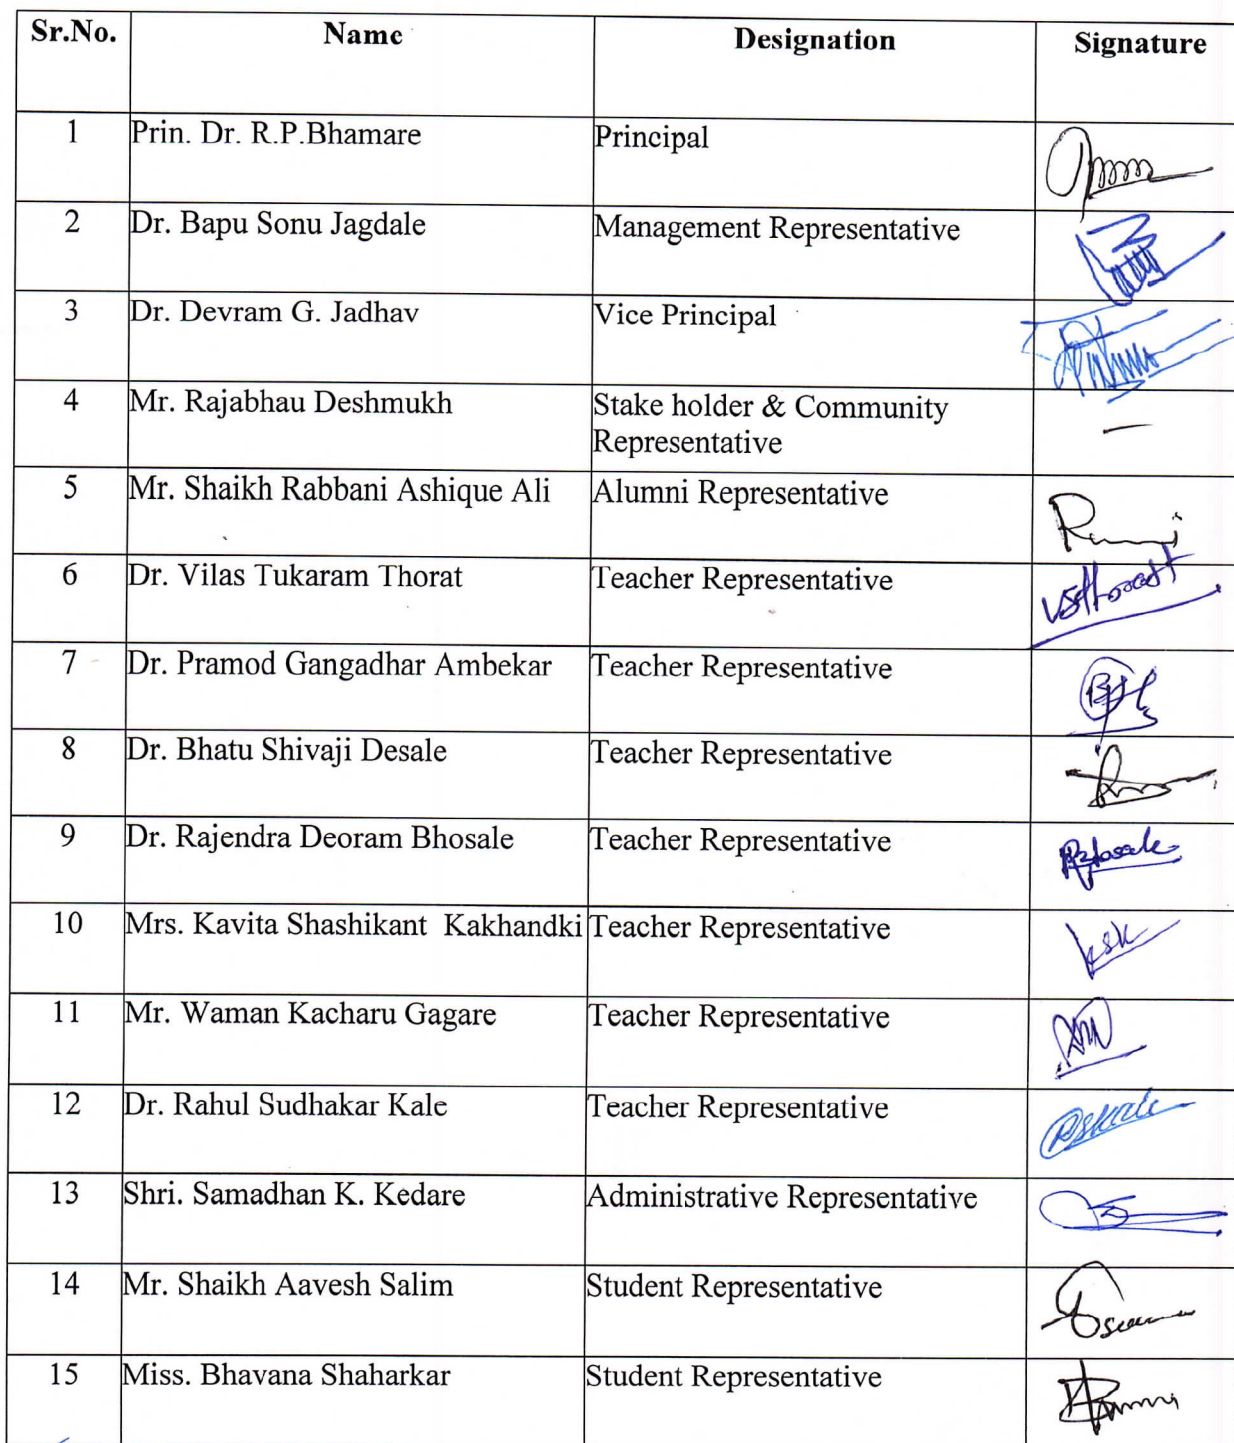 Sr.No. Name Designation Signature
1 Prin. Dr. R.P.Bhamare Principal
2 Dr. Bapu Sonu Jagdale Management Representative
3 Dr. Devram G. Jadhav Vice Principal
4 Mr. Rajabhau Deshmukh Stake holder & Community
Representative –
5 Mr. Shaikh Rabbani Ashique Ali Alumni Representative
6 Dr. Vilas Tukaram Thorat Teacher Representative
7 Dr. Pramod Gangadhar Ambekar Teacher Representative
8 Dr. Bhatu Shivaji Desale Teacher Representative
9 Dr. Rajendra Deoram Bhosale Teacher Representative
10 Mrs. Kavita Shashikant Kakhandki Teacher Representative
11 Mr. Waman Kacharu Gagare Teacher Representative
12 Dr. Rahul Sudhakar Kale Teacher Representative
13 Shri. Samadhan K. Kedare Administrative Representative
14 Mr. Shaikh Aavesh Salim Student Representative
15 Miss. Bhavana Shaharkar Student Representative